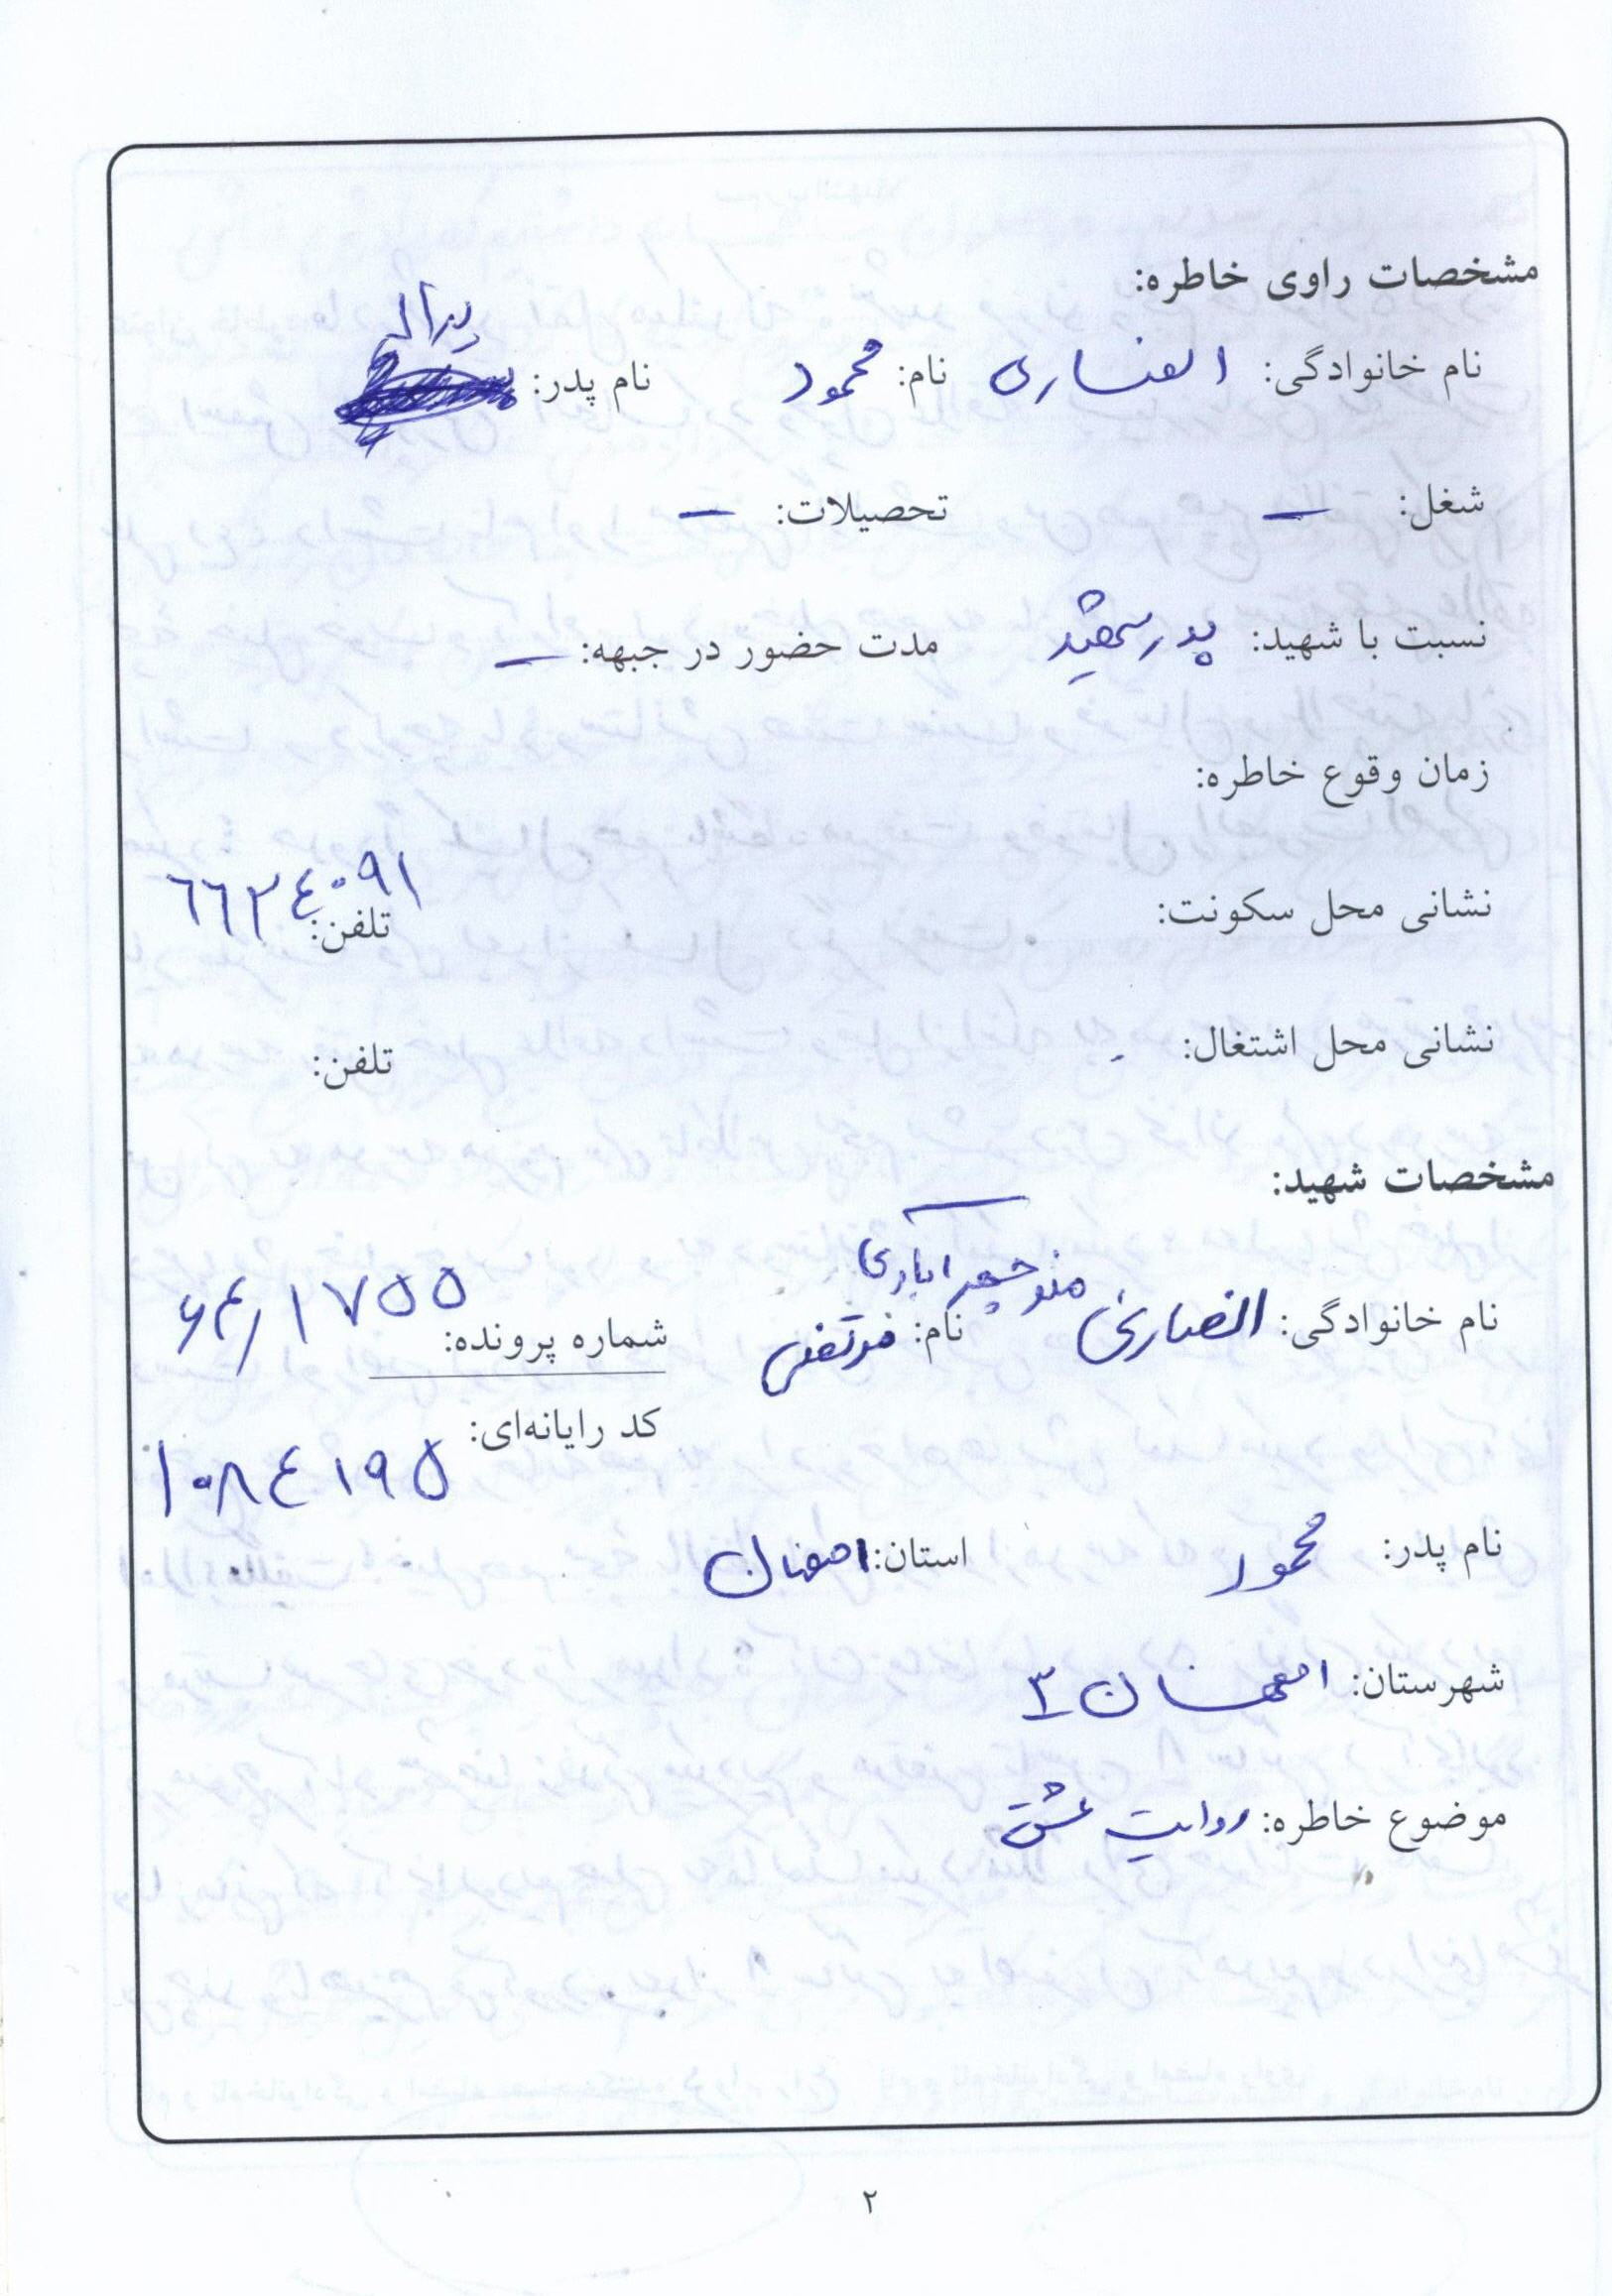 مشخصات راوی خاطره:
نام خانوادگی: انصاری نام: محمود نام پدر: یداله
شغل: — تحصیلات: —
نسبت با شهید: پدر شهید مدت حضور در جبهه: —
زمان وقوع خاطره:
نشانی محل سکونت: تلفن: ۶۶۲۴۰۹۱
نشانی محل اشتغال: تلفن:
مشخصات شهید:
نام خانوادگی: انصاری منوچهرآبادی نام: مرتضی شماره پرونده: ۶۴/۱۷۵۵
کد رایانه‌ای: ۱۰۸۴۱۹۵
نام پدر: محمود استان: اصفهان
شهرستان: اصفهان ۳
موضوع خاطره: روایت عشق
۲